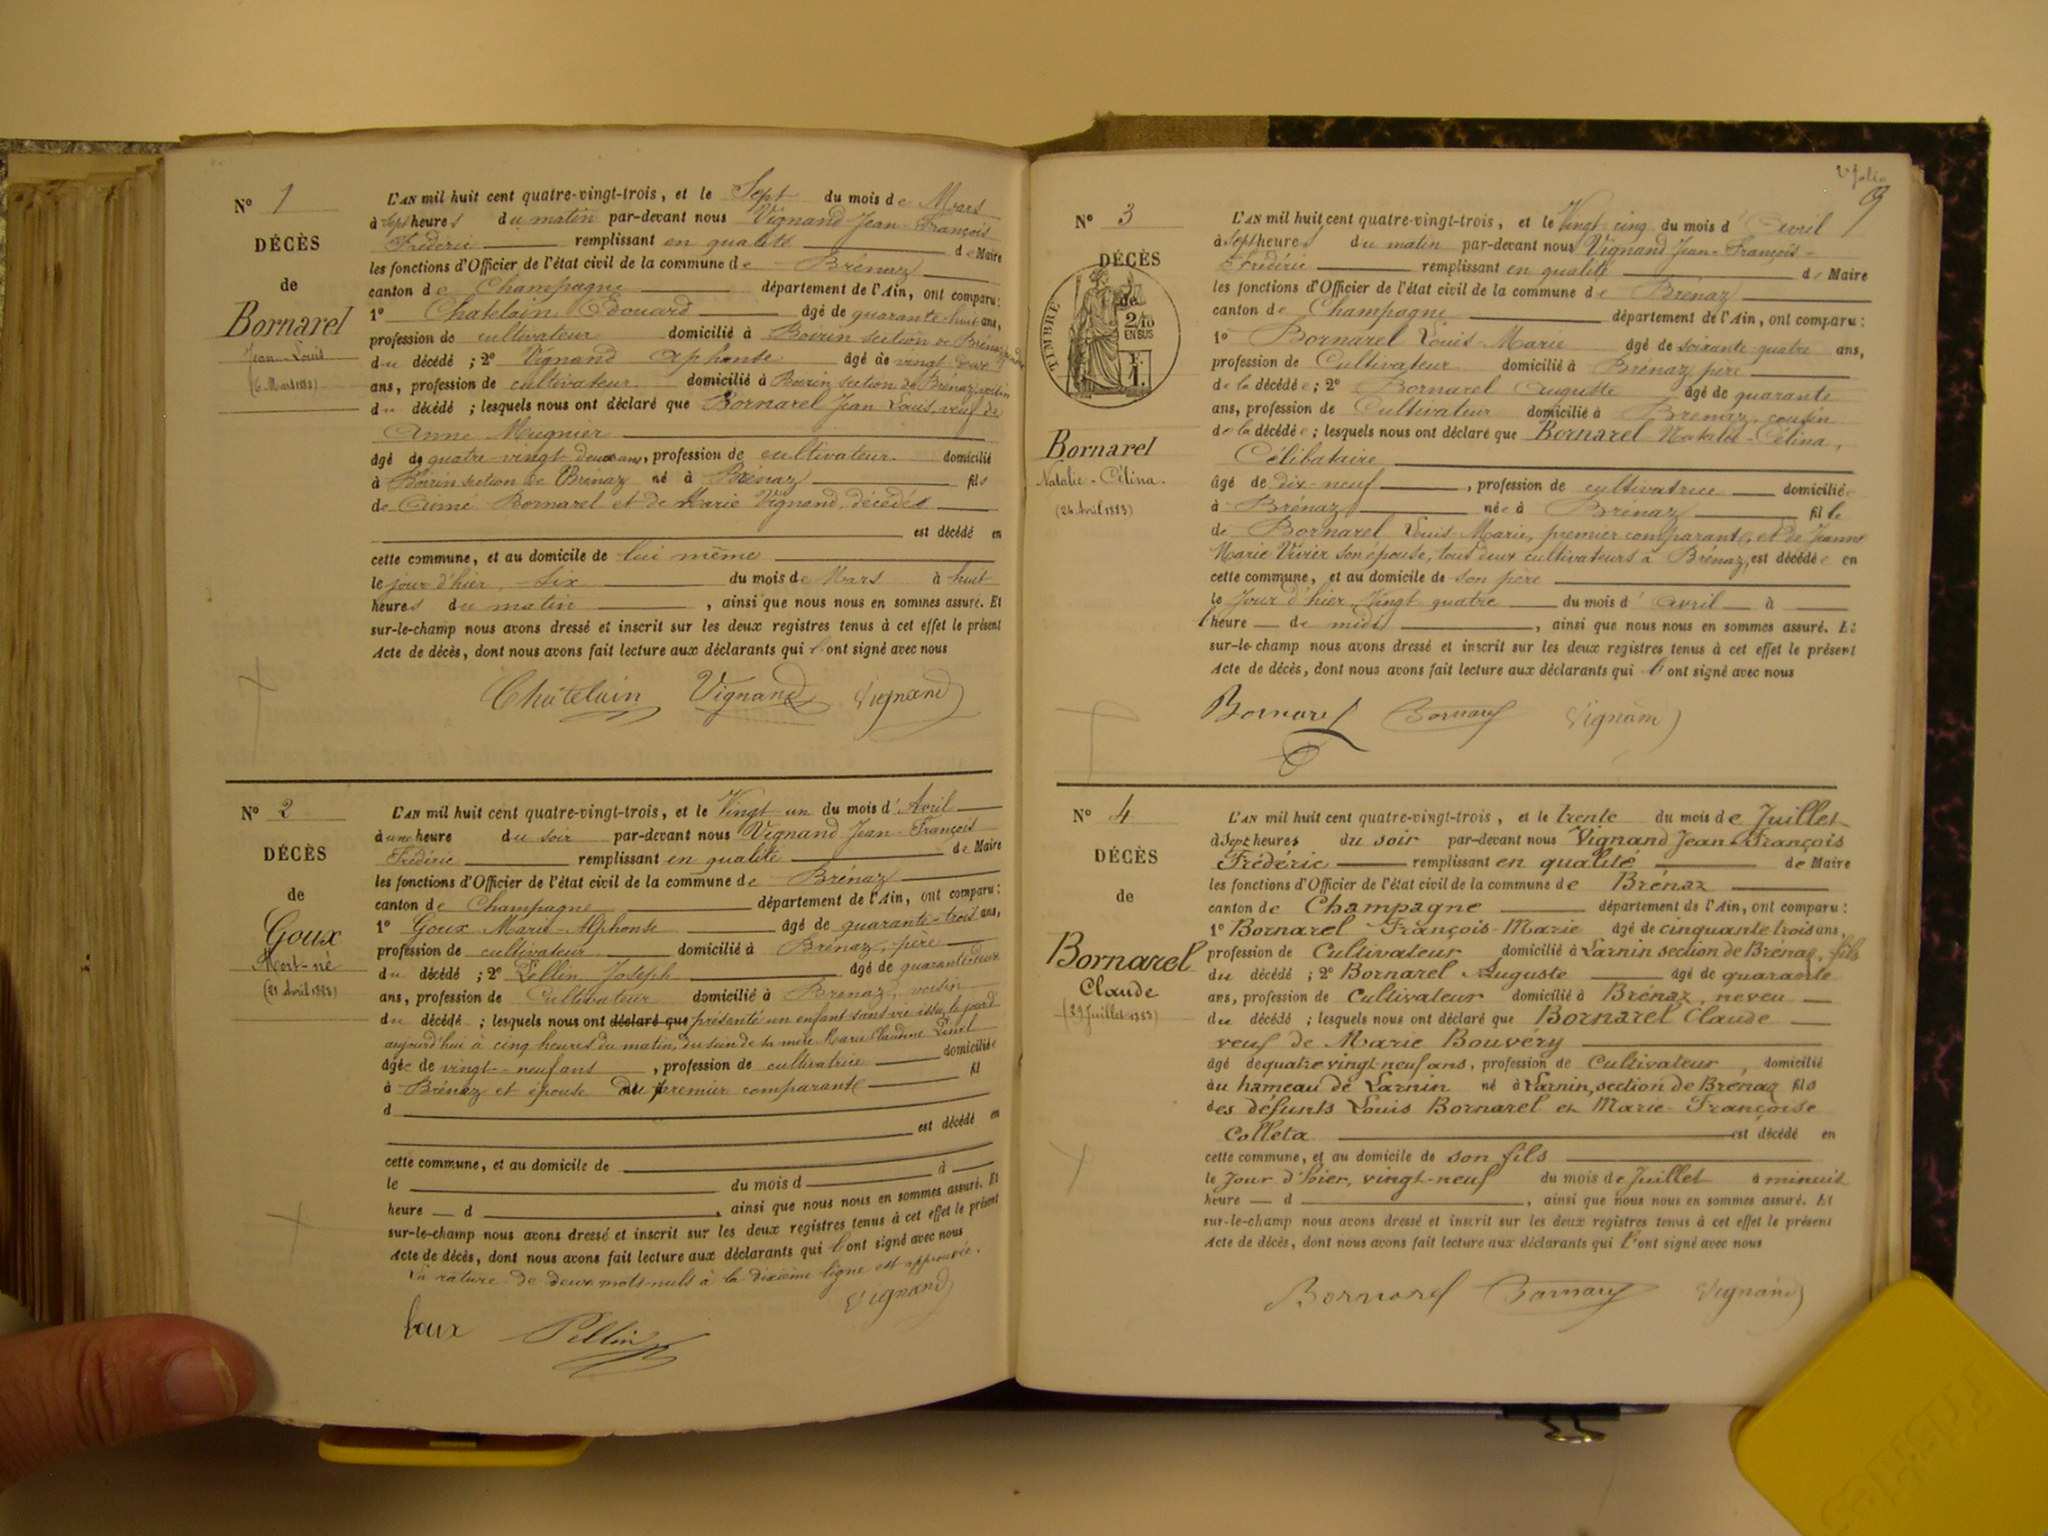 N° 1
DÉCÈS
de
Bornarel
Jean-Louis
(6 Mars 1883)
L'AN mil huit cent quatre-vingt-trois, et le Sept du mois de Mars
à sept heures du matin par-devant nous Vignand Jean-François
Frédéric remplissant en qualité de Maire
les fonctions d'Officier de l'état civil de la commune de Brénaz
canton de Champagne département de l'Ain, ont comparu:
1° Chatelain Edouard âgé de quarante-huit ans,
profession de cultivateur domicilié à Boirin section de Brénaz
du décédé ; 2° Vignand Alphonse âgé de vingt deux
ans, profession de cultivateur domicilié à Boirin section de Brénaz, voisin
du décédé ; lesquels nous ont déclaré que Bornarel Jean Louis, veuf de
Anne Mugnier
âgé de quatre-vingt deux ans, profession de cultivateur domicilié
à Boirin section de Brénaz né à Brénaz fils
de Aimé Bornarel et de Marie Vignand, décédés
est décédé en
cette commune, et au domicile de lui même
le jour d'hier, six du mois de Mars à huit
heures du matin , ainsi que nous nous en sommes assuré. Et
sur-le-champ nous avons dressé et inscrit sur les deux registres tenus à cet effet le présent
Acte de décès, dont nous avons fait lecture aux déclarants qui l'ont signé avec nous
Châtelain Vignand Vignand
N° 2
DÉCÈS
de
Goux
Mort-né
(21 Avril 1883)
L'AN mil huit cent quatre-vingt-trois, et le Vingt-un du mois d'Avril
à une heure du soir par-devant nous Vignand Jean-François
Frédéric remplissant en qualité de Maire
les fonctions d'Officier de l'état civil de la commune de Brénaz
canton de Champagne département de l'Ain, ont comparu:
1° Goux Marie-Alphonse âgé de quarante-trois ans,
profession de cultivateur domicilié à Brénaz, père
du décédé ; 2° Pellin Joseph âgé de quarante-deux
ans, profession de Cultivateur domicilié à Brénaz, voisin
du décédé ; lesquels nous ont déclaré que présenté un enfant sans vie issu
aujourd'hui à cinq heures du matin, du sein de sa mère Marie Claudine
âgée de vingt-neuf ans , profession de cultivatrice domiciliée
à Brénaz et épouse du premier comparant fil
d
est décédé en
cette commune, et au domicile de
le du mois d à
heure d , ainsi que nous nous en sommes assuré. Et
sur-le-champ nous avons dressé et inscrit sur les deux registres tenus à cet effet le présent
Acte de décès, dont nous avons fait lecture aux déclarants qui l'ont signé avec nous
La rature de deux mots nuls à la dixième ligne est approuvée.
Goux Pellin Vignand
2e folio
N° 3
DÉCÈS
de
TIMBRE
2/10
EN SUS
Bornarel
Natalie-Célina.
(24 Avril 1883)
L'AN mil huit cent quatre-vingt-trois, et le Vingt cinq du mois d'Avril
à sept heures du matin par-devant nous Vignand Jean-François-
Frédéric remplissant en qualité de Maire
les fonctions d'Officier de l'état civil de la commune de Brénaz
canton de Champagne département de l'Ain, ont comparu:
1° Bornarel Louis-Marie âgé de soixante-quatre ans,
profession de Cultivateur domicilié à Brénaz père
de la décédée ; 2° Bornarel Auguste âgé de quarante
ans, profession de Cultivateur domicilié à Brénaz, cousin
de la décédée ; lesquels nous ont déclaré que Bornarel Natalie-Célina,
Célibataire
âgé de dix-neuf , profession de cultivatrice domiciliée
à Brénaz née à Brénaz fille
de Bornarel Louis Marie, premier comparant, et de Jeanne
Marie Vivier son épouse, tous deux cultivateurs à Brénaz, est décédée en
cette commune, et au domicile de son père
le Jour d'hier, Vingt quatre du mois d'avril à
heure de midi , ainsi que nous nous en sommes assuré. Et
sur-le-champ nous avons dressé et inscrit sur les deux registres tenus à cet effet le présent
Acte de décès, dont nous avons fait lecture aux déclarants qui l'ont signé avec nous
Bornarel Bornarel Vignand
N° 4
DÉCÈS
de
Bornarel
Claude
(29 Juillet 1883)
L'AN mil huit cent quatre-vingt-trois, et le trente du mois de Juillet
à Sept heures du soir par-devant nous Vignand Jean-François
Frédéric remplissant en qualité de Maire
les fonctions d'Officier de l'état civil de la commune de Brénaz
canton de Champagne département de l'Ain, ont comparu:
1° Bornarel François-Marie âgé de cinquante trois ans,
profession de Cultivateur domicilié à Larnin section de Brénaz, fils
du décédé ; 2° Bornarel Auguste âgé de quarante
ans, profession de Cultivateur domicilié à Brénaz, neveu
du décédé ; lesquels nous ont déclaré que Bornarel Claude
veuf de Marie Bouvéry
âgé de quatre vingt-neuf ans, profession de Cultivateur, domicilié
au hameau de Larnin né à Larnin, section de Brénaz fils
des défunts Louis Bornarel et Marie-Françoise
Colleta est décédé en
cette commune, et au domicile de son fils
le Jour d'hier, vingt-neuf du mois de Juillet à minuit
heure d , ainsi que nous nous en sommes assuré. Et
sur-le-champ nous avons dressé et inscrit sur les deux registres tenus à cet effet le présent
Acte de décès, dont nous avons fait lecture aux déclarants qui l'ont signé avec nous
Bornarel Bornarel Vignand